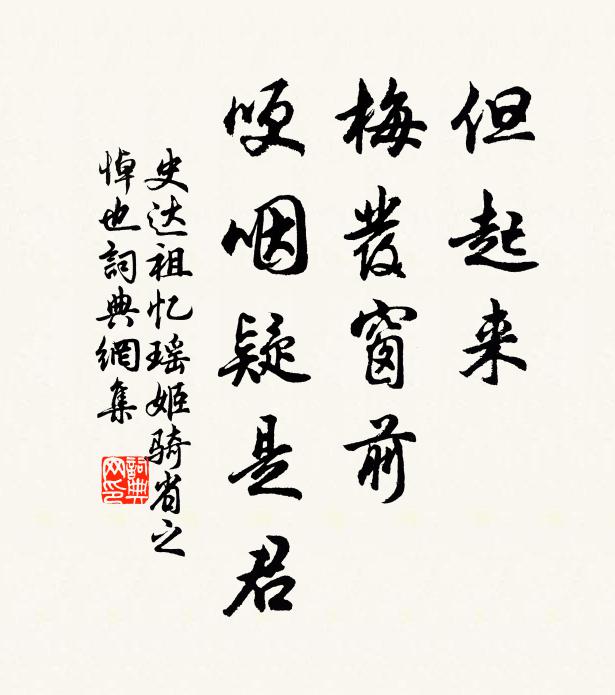 但起来
梅發窗前
哽咽疑是君
史达祖忆瑶姬骑省之
悼也詞典網集
詞典
网印